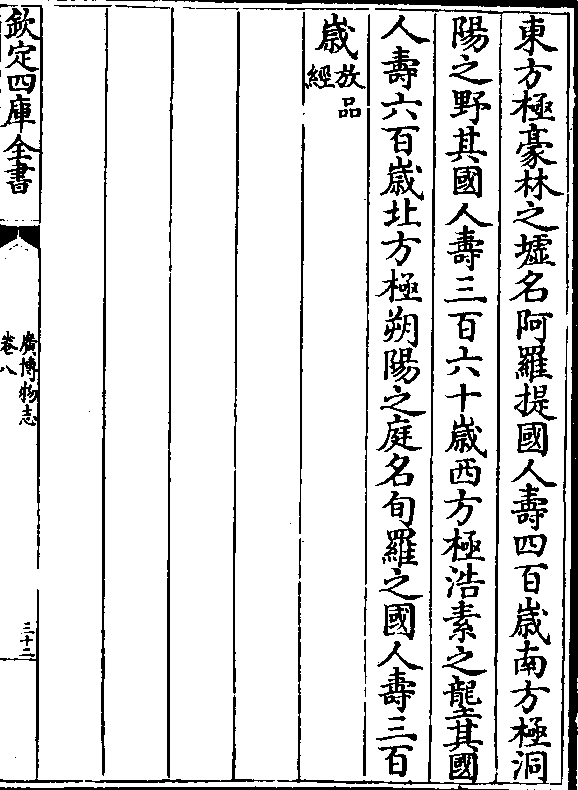 東方極豪林之墟名阿羅提國人壽四百歲南方極洞
陽之野其國人壽三百六十歲西方極浩素之壟其國
人壽六百歲北方極朔陽之庭名旬羅之國人壽三百
歲放品
經
欽定四庫全書
廣博物志
卷八
三十二